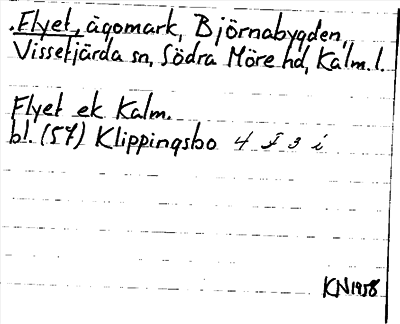 .Flyet, ägomark, Björnabygden,
Vissefjärda sn, Södra Möre hd, Kalm. l.
Flyet ek Kalm.
bl. (57) Klippingsbo 4 I 3 i
KN 1958